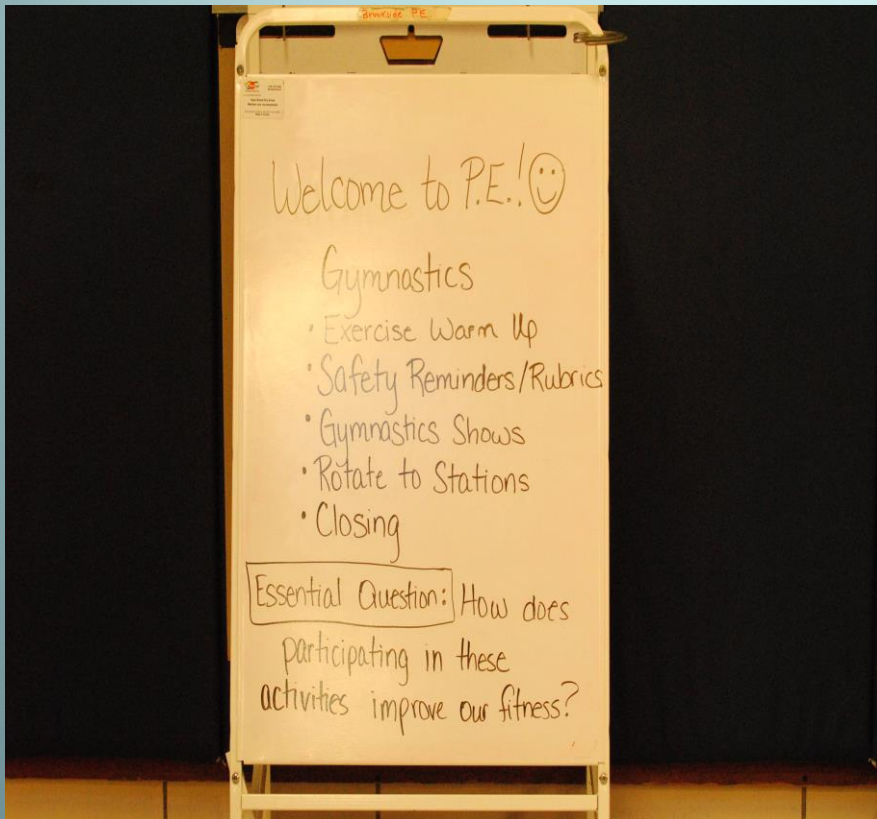 Welcome to P.E.!
Gymnastics
• Exercise Warm Up
• Safety Reminders/Rubrics
• Gymnastics Shows
• Rotate to Stations
• Closing
Essential Question: How does
participating in these
activities improve our fitness?